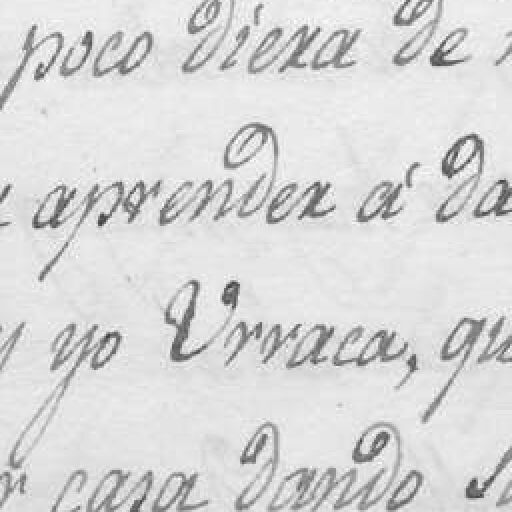 poco diera de
aprender á da
y yo Urraca, qu
r casa dando